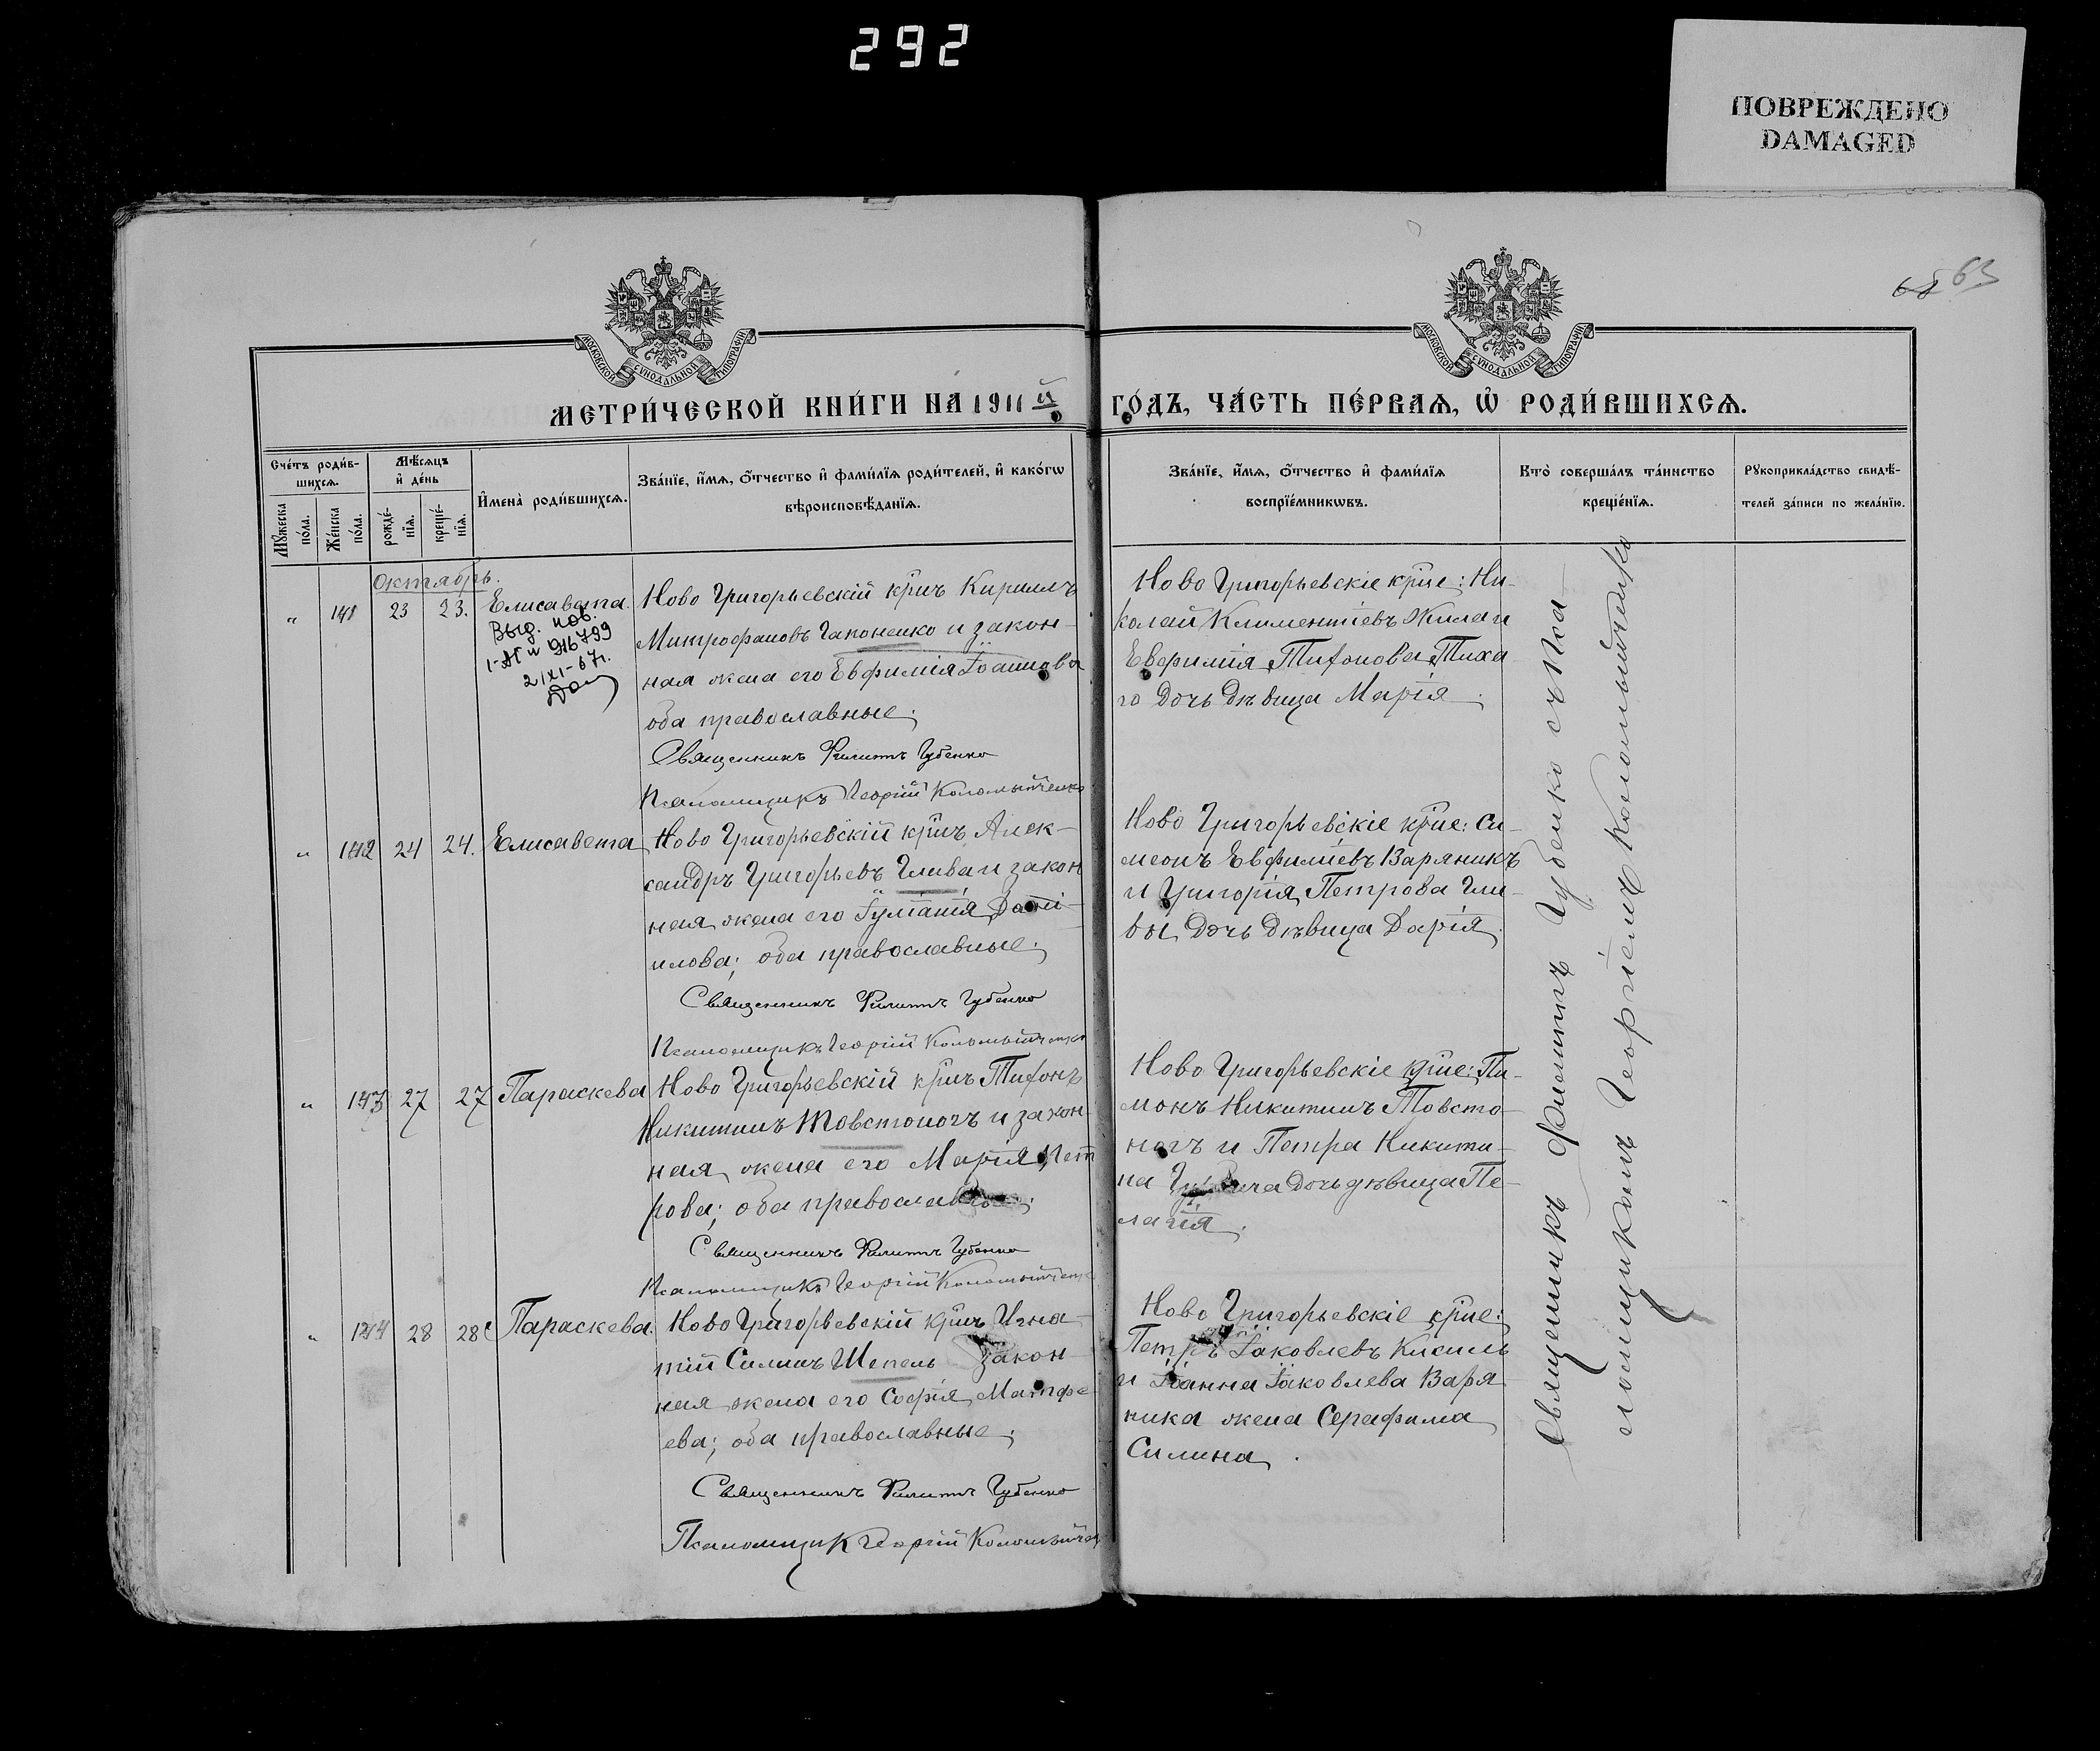 292
ПОВРЕЖДЕНО
DAMAGED
68 63
МОСКОВСКОЙ СѴНОДАЛЬНОЙ ТИПОГРАФІИ
МОСКОВСКОЙ СѴНОДАЛЬНОЙ ТИПОГРАФІИ
МЕТРИ́ЧЕСКОЙ КНИ́ГИ НА 1911 й
ГО́ДЪ, ЧА́СТЬ ПЕ́РВАѦ, Ѽ РОДИ́ВШИХСѦ.
Сче́тъ роди́в-
шихсѧ.
Мꙋ́жеска по́ла.
Же́нска по́ла.
Мѣ́сѧцъ
и҆ де́нь
рожде́-
нїѧ.
креще́-
нїѧ.
И҆мена̀ роди́вшихсѧ.
Зва́нїе, и҆́мѧ, ѻ҆́тчество и҆ фами́лїѧ роди́телей, и҆ како́гѡ
вѣроисповѣ́данїѧ.
Зва́нїе, и҆́мѧ, ѻ҆́тчество и҆ фами́лїѧ
воспрїе́мникѡвъ.
Кто̀ соверша́лъ та́инство
креще́нїѧ.
Рꙋкоприкла́дство свидѣ́-
телей за́писи по жела́нїю.
Октябрь.
" 141 23 23. Елисавета.
Выд. пов.
I-АП № 916799
2/XI-67г.
Ново Григорьевскій кр̃нъ Кириллъ
Митрофановъ Гапоненко и закон-
ная жена его Евфимія Іоаннова
оба православные.
Священникъ Филиппъ Губенко
Псаломщикъ Георгій Коломыйченко
Ново Григорьевскіе кр̃не: Ни-
колай Климентіевъ Жила и
Евфимія Тихонова Тиха
го дочь дѣвица Марія.
" 142 24 24. Елисавета
Ново Григорьевскій кр̃нъ Алек-
сандръ Григорьевъ Глива и закон
ная жена его Іуліанія Дані-
илова; оба православные.
Священникъ Филиппъ Губенко
Псаломщикъ Георгій Коломыйченко
Ново Григорьевскіе кр̃не: Си-
меонъ Евфиміевъ Вареникъ
и Григорія Петрова Гли-
вы дочь дѣвица Дарія.
" 143 27 27 Параскева
Ново Григорьевскій кр̃нъ Тихонъ
Никитинъ Товстоногъ и закон-
ная жена его Марія Пет
рова; оба православные.
Священникъ Филиппъ Губенко
Псаломщикъ Георгій Коломыйченко
Ново Григорьевскіе кр̃не: Пи-
монъ Никитинъ Товсто-
ногъ и Петра Никити-
на дочь дѣвица Пе-
лагія.
" 144 28 28 Параскева.
Ново Григорьевскій кр̃нъ Игна-
тій Силинъ Шепель закон-
ная жена его Софія Матфе-
ева; оба православные.
Священникъ Филиппъ Губенко
Псаломщикъ Георгій Коломыйченко
Ново Григорьевскіе кр̃не:
Петръ Іаковлевъ Кисиль
и Іоанна Іаковлева Варя
ника жена Серафима
Силина.
Священникъ Филиппъ Губенко съ Пса-
ломщикомъ Георгіемъ Коломыйченко